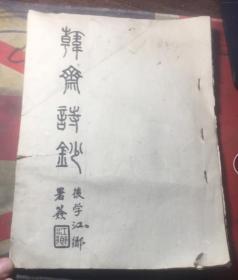 韓齋詩鈔
後学江
署簽